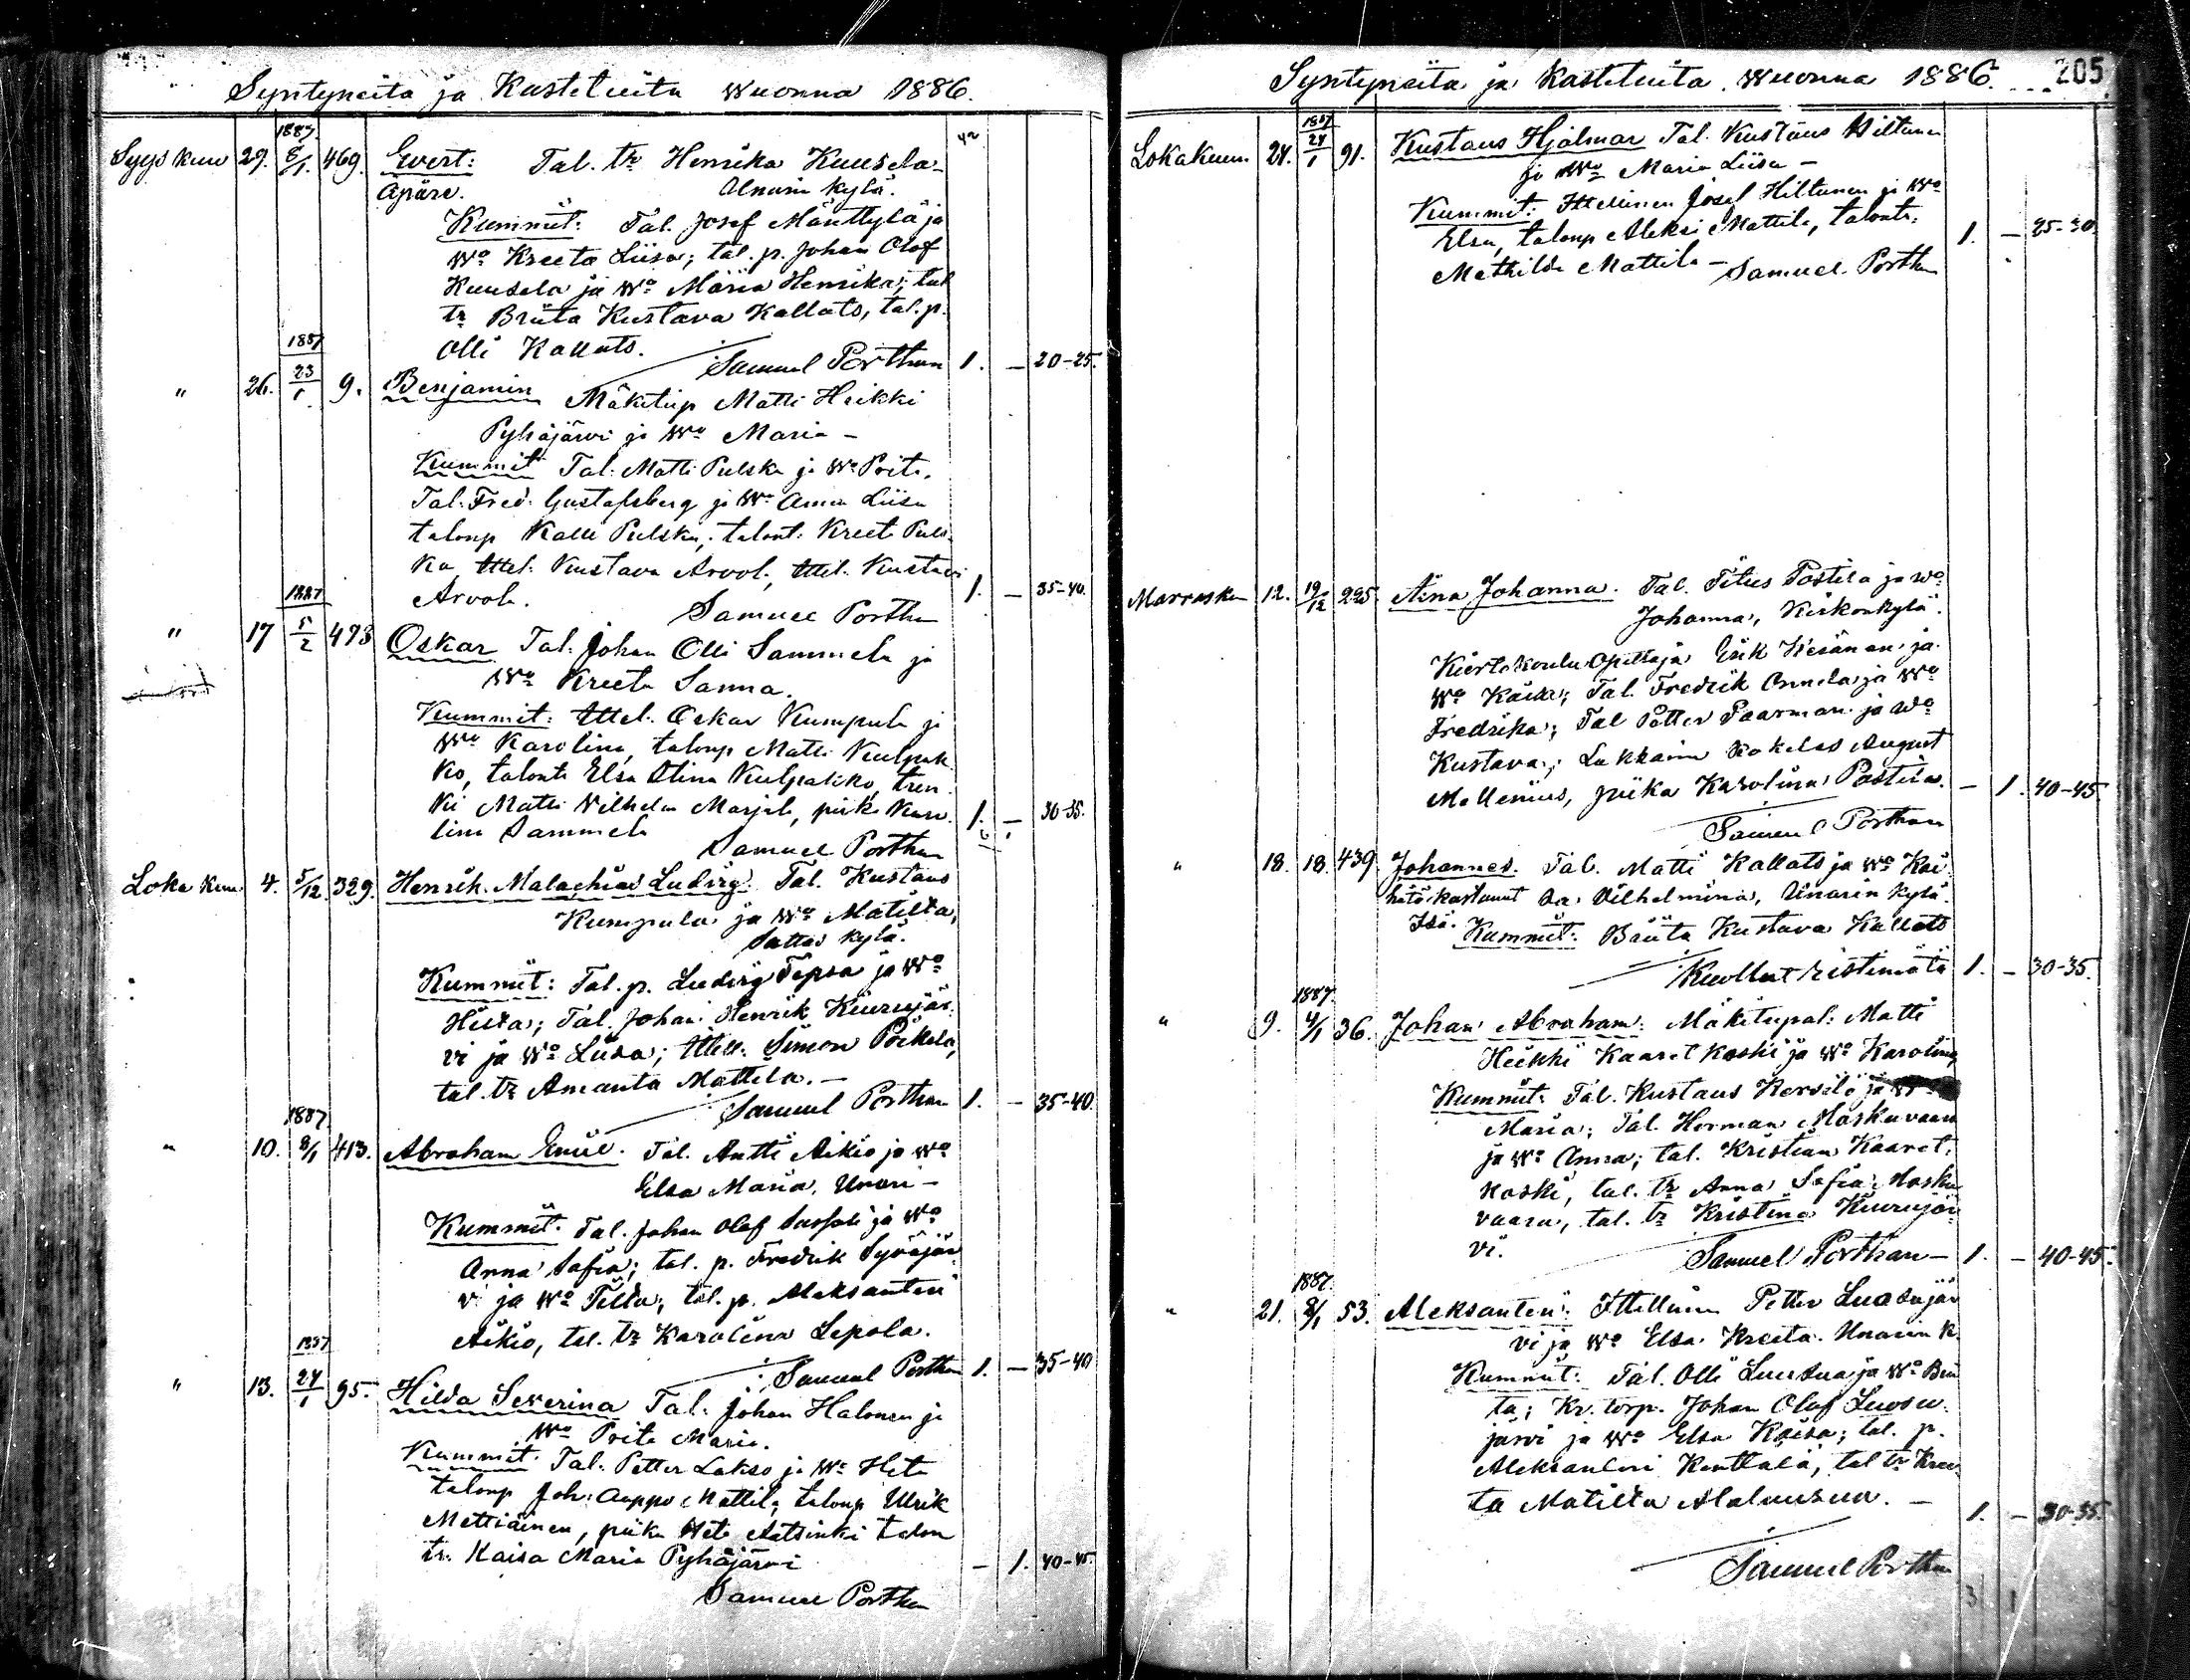 Syntyneitä ja Kasteluita Wuonna 1886.
1887.
Syys kuu 29. 8/1. 469. Evert: Tal. tr Henrika Kuusela
Äpäre. Unarin kylä.
Kummit: Tal. Josef Mänttylä ja
Wo Kreeta Liisa; tal. p. Johan Olof
Kuusela ja Wo Maria Henrika; tal
tr Briita Kustava Kallats, tal. p.
Olli Kallats.
Samuel Porthan 1. — 20-25.
1887
" 26. 23/1 9. Benjamin Mäkitup Matti Heikki
Pyhäjärvi ja Wo Maria —
Kummit Tal. Matti Pulska ja Wo Prita,
Tal. Fred. Gustafsberg ja Wo Anna Liisa
talonp Kalle Pulska, talont. Kreeta Puls-
ka, Ittel. Kustava Arvol., Ittel. Kustavi
Arvola. 1. — 35-40.
Samuel Porthan
1887
" 17 5/2 473 Oskar Tal. Johan Olli Sammela ja
Wo Kreeta Sanna.
Kummit: Ittel. Oskar Kumpula ja
Wo Karolina, talonp Matti Kulpak-
ko, talontr Elsa Stina Kulpakko, tren-
ki Matti Vilhelm Marjala, piika Karo-
lina Sammela 1. — 30-35.
Samuel Porthan
Loka kuu 4. 5/12. 329. Henrik Malachias Ludvig: Tal. Kustaus
Kumpula ja Wo Matilta,
Sattas kylä.
Kummit: Tal. p. Ludvig Tepsa ja Wo
Hilta; Tal. Johan Henrik Kiurujär-
vi ja Wo Liisa; Ittell. Simon Poikela,
tal. tr Amanta Mattila. —
Samuel Porthan 1. — 35-40.
1887
" 10. 8/1 413. Abraham Emil. Tal. Antti Aikio ja Wo
Elsa Maria, Unari —
Kummit. Tal. Johan Olof Sassali ja Wo
Anna Sofia; tal. p. Fredrik Syväjär-
vi ja Wo Tilta; tal. p. Aleksanteri
Aikio, tal. tr Karolina Lepola.
Samuel Porthan 1. — 35-40
1887
" 13. 24/1 95. Hilda Severina Tal. Johan Halonen ja
Wo Prita Maria.
Kummit. Tal. Petter Lakso ja Wo Heta
talonp Joh: Auppo Mattila, talonp Ulrik
Mettiäinen, piika Heta Aatsinki talon
tr. Kaisa Maria Pyhäjärvi — 1. 40-45.
Samuel Porthan
Syntyneitä ja Kasteluita Wuonna 1886. 205
1887
Lokakuun 24. 24/1 91. Kustaus Hjalmar Tal. Kustaus Hiltunen
ja Wo Maria Liisa —
Kummit: Ittellinen Josef Hiltunen ja Wo
Elsa, talonp Aleksi Mattila, talontr.
Mathilda Mattila — 1. — 25-30.
Samuel Porthan
Marrasku 12. 19/12 225 Aina Johanna. Tal. Titus Postila ja Wo
Johanna, Kirkonkylä.
Kiertokoulu Opettaja Erik Keränen ja
Wo Kaisa; Tal. Fredrik Onnela ja Wo
Fredrika; Tal Petter Paarman ja Wo
Kustava; Lukkarin kokelas August
Mellenius, piika Karolina Postila. — 1. 40-45.
Samuel Porthan
" 18. 18. 439. Johannes. Tal. Matti Kallats ja Wo Kai-
hätä kastanut sa Vilhelmina, Unarin kylä.
Isä. Kummit: Briita Kustava Kallats
Kuollut ristimätä 1. — 30-35.
1887.
" 9. 4/1 36. Johan Abraham: Mäkitupal: Matti
Heikki Kaaretkoski ja Wo Karolina
Kummit: Tal. Kustaus Kersilö ja Wo
Maria; Tal. Herman Moskuvaara
ja Wo Anna; tal. Kristian Kaaret-
koski, tal. tr Anna Sofia Mosku-
vaara, tal. tr Kristina Kiurujär-
vi.
Samuel Porthan — 1. — 40-45.
1887.
" 21. 8/1 53. Aleksanteri: Ittellinen Petter Luosujär-
vi ja Wo Elsa Kreeta. Unarin k.
Kummit: Tal. Olli Luusua ja Wo Brii-
ta; Kr. torp. Johan Olof Luosu-
järvi ja Wo Elsa Kaisa; tal. p.
Aleksanteri Kenttälä, tal tr Kree-
ta Matilta Alaluusua. — 1. — 30-35.
Samuel Porthan
3 1